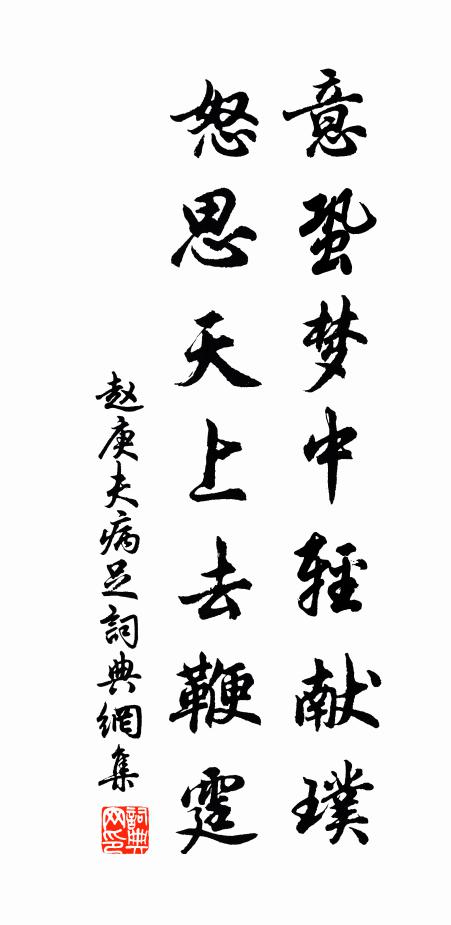 意蛩梦中輕献璞
怒思天上去鞭霆
赵庚夫病足詞典網集
詞典网印